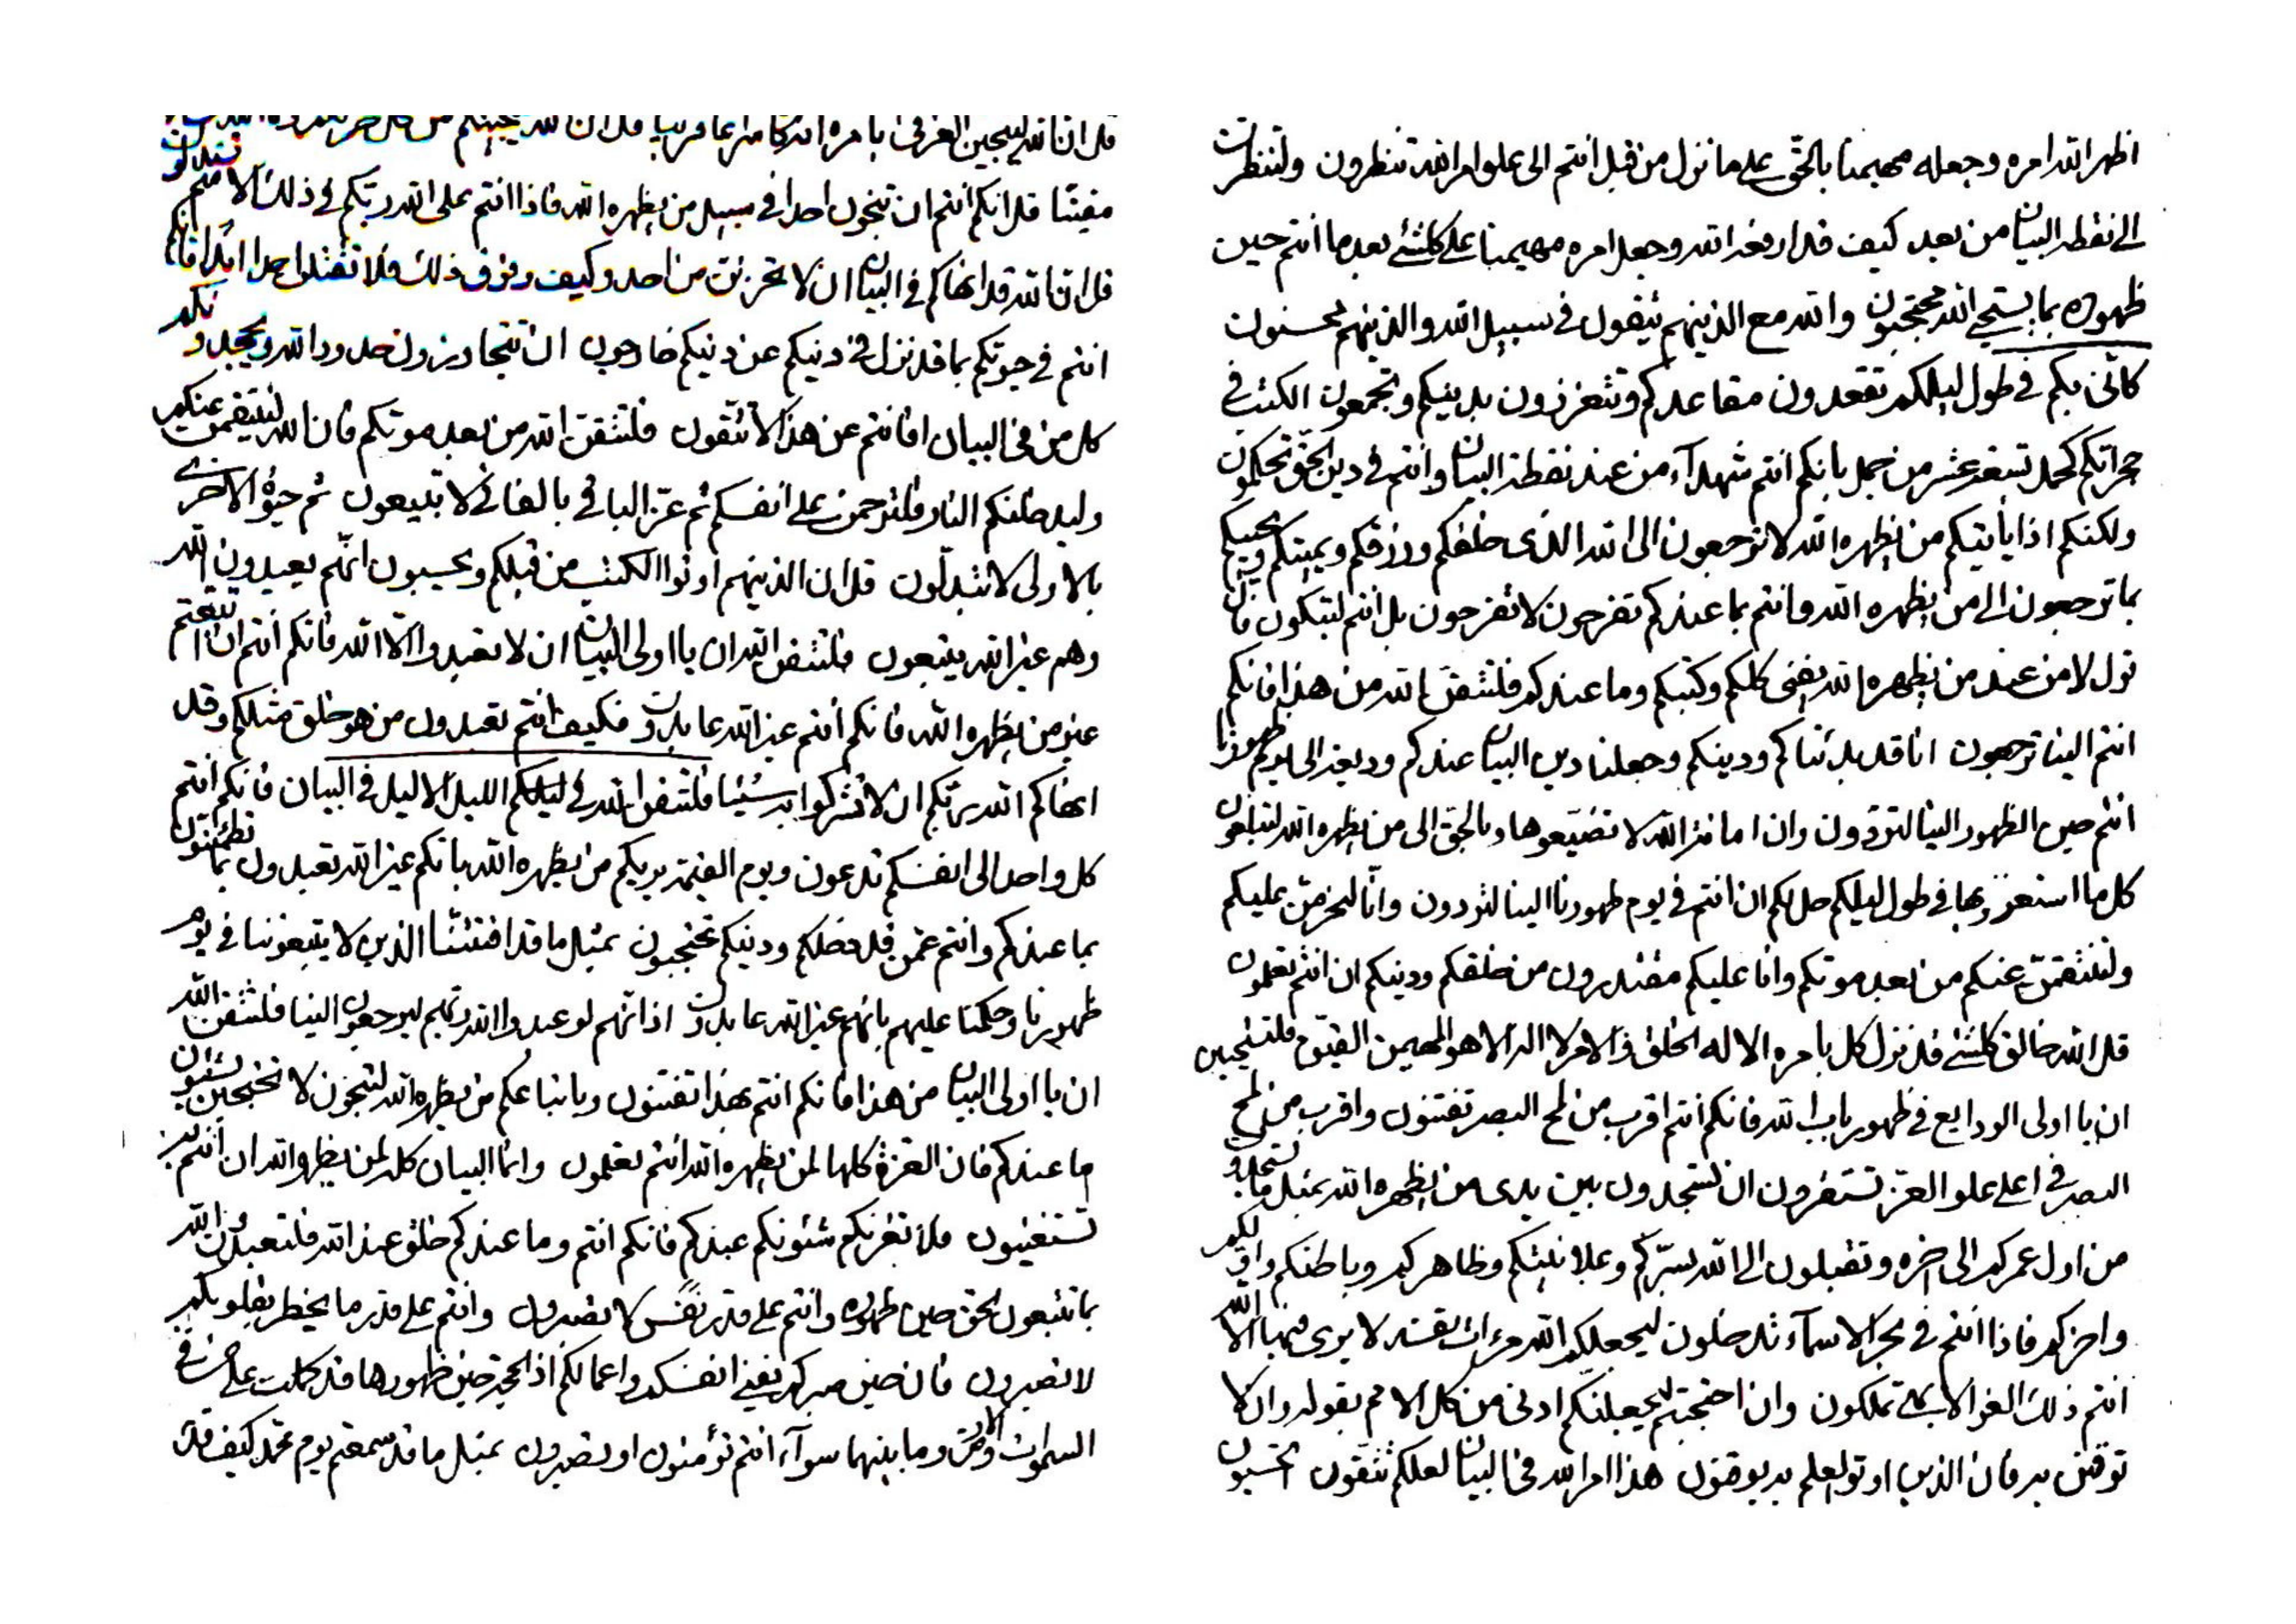 اظهر الله امره وجعله مهيمنا بالحق على ما نزل من قبل انتم الى علو امر الله تنظرون ولتنظرن
الى نقطة البيان من بعد كيف قد ارفعه الله وجعل امره مهيمنا على كلشئ بعد ما انتم حين
ظهوره بما يستحي الله محتجبون والله مع الذينهم يتقون في سبيل الله والذينهم محسنون
كانى بكم في طول ليلكم تقعدون مقاعدكم وتتعززون بدينكم وتجمعون الكتب في
حجراتكم كحمل تسعة عشر من جمل بانكم انتم شهدآء من عند نقطة البيان وانتم في دين الحق تحكمون
ولكنكم اذا ياتيكم من يظهره الله لا ترجعون الى الله الذى خلقكم ورزقكم ويميتكم ويحييكم
بما ترجعون الى من يظهره الله وانتم بما عندكم تفرحون لا تفرحون بل انتم لتبكون فان
نزل لا من عند من يظهره الله يفنى كلكم وكتبكم وما عندكم فلتتقن الله من هذا فانكم
انتم الينا ترجعون انا قد بدئناكم ودينكم وجعلنا دين البيان عندكم وديعة الى يوم ظهورنا
انتم حين الظهور الينا لتردون وان امانة الله لا تضيعوها وبالحق الى من يظهره الله لتبلغون
كل ما استعززتم بها في طول ليلكم حل لكم ان انتم في يوم ظهورنا الينا لتردون وانا لنحرمن عليكم
ولننتقمن عنكم من بعد موتكم وانا عليكم مقتدرون من خلقكم ودينكم ان انتم تعلمون
قل الله خالق كلشئ قد نزل كل بامره الا له الخلق والامر لا اله الا هو المهيمن القيوم فلتستحيين
ان يا اولى الودايع في ظهور باب الله فانكم انتم اقرب من لمح البصر تفتنون واقرب من لمح
البصر في اعلى علو العز تستقرون ان تسجدون بين يدى من يظهره الله بمثل ما تسجدون
من اول عمركم الى اخره وتقبلون الى الله بسركم وعلانيتكم وظاهركم وباطنكم واولكم
واخركم فاذا انتم في بحر الاسمآء تدخلون ليجعلكم الله مرات نفسه لا يرى فيها الا الله
انتم ذلك العز الابهى تملكون وان احتجبتم ليجعلنكم ادنى من كل الامم بقوله وان لا
توقنن به فان الذين اوتوا العلم به يوقنون هذا امر الله في البيان لعلكم تتقون
قل ان الله لينجين
قل انكم انتم ان تنجون احدا في سبيل من يظهره الله فاذا انتم على الله ربكم في ذلك الاسم
قل ان الله قد انهاكم في البيان ان لا تحزنن من احد وكيف وفوق ذلك فلا تقتلن احدا ابدا فانكم
انتم في حيوتكم بما قد نزل في دينكم عن دينكم خارجون ان تتجاوزون حدود الله
كل من في البيان افانتم عن هذا لا تتقون فلتتقن الله من بعد موتكم فان الله لينتقمن عنكم
وليدخلنكم النار فلترحمن على انفسكم ثم عز الباقي بالفاني لا تبيعون ثم حيوة الاخرى
بالاولى لا تتبدلون قل ان الذينهم اوتوا الكتب من قبلكم ويحسبون انهم يعبدون الله
وهم غير الله يتبعون فلتتقن الله ان يا اولى البيان ان لا تعبدوا الا الله فانكم انتم ان اتبعتم
غير من يظهره الله فانكم انتم غير الله عابدون فكيف انتم تعبدون من هو خلق مثلكم وقد
انهاكم الله ربكم ان لا تشركوا به شيئا فلتتقن الله في ليلكم الليل الاليل في البيان فانكم انتم
كل واحد الى انفسكم تدعون ويوم القيمة يريكم من يظهره الله بانكم غير الله تعبدون
بما عندكم وانتم عمن قد خلقكم ودينكم تحتجبون بمثل ما قد افتتنا الذين لا يتبعوننا في يوم
ظهورنا وحكمنا عليهم بانهم غير الله عابدون اذ انهم لو عبدوا الله ربهم ليرجعون الينا فلتتقن الله
ان يا اولى البيان من هذا فانكم انتم بهذا تفتنون وباتباعكم من يظهره الله لتنجون لا تحتجبن بشئون
ما عندكم فان العزة كلها لمن يظهره الله انتم تعلمون وانما البيان كله لمن يظهره الله ان انتم به
تستغنيون فلا تغرنكم شئونكم عندكم فانكم انتم وما عندكم خلق عند الله فلتعبدن الله
بما تتبعون الحق حين ظهوره وانتم على قدر نفس لا تصبرون وانتم على قدر ما يخطر بقلوبكم
لا تصبرون فان حين صبركم يفنى انفسكم واعمالكم اذ الحجة حين ظهورها قد كملت على من في
السموات والارض وما بينهما سوآء انتم تؤمنون او تصبرون بمثل ما قد سمعتم يوم محمد كيف قد